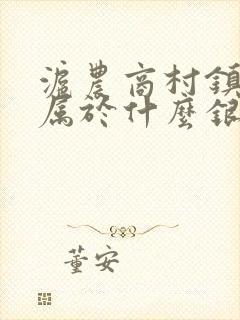 滬農商村鎮
属於什麼銀
董安